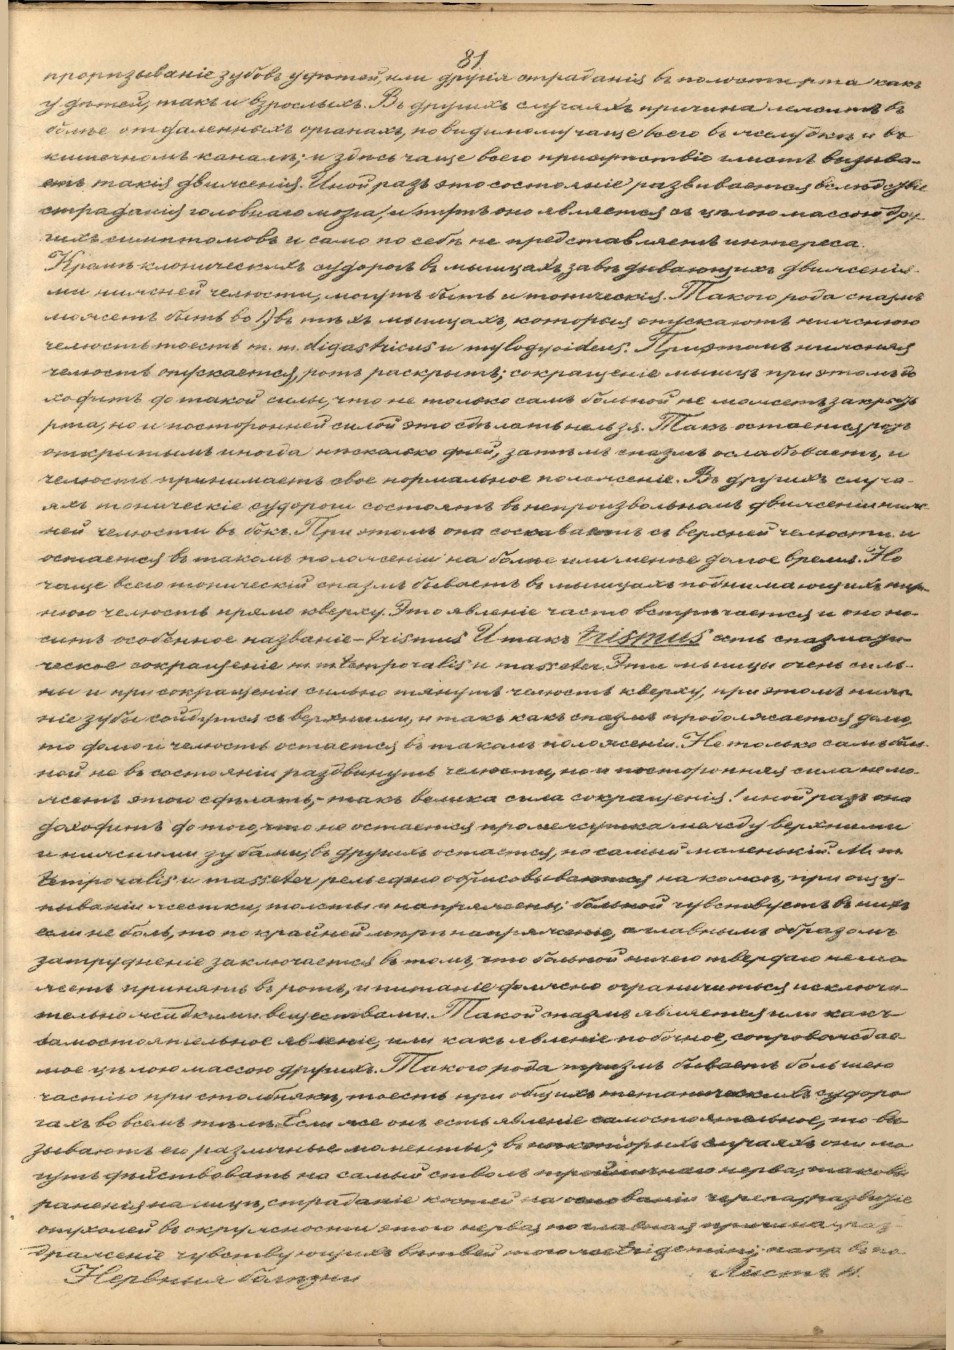 81
прорѣзываніе зубовъ у дѣтей, или другія страданія въ полости рта какъ
у дѣтей, такъ и взрослыхъ. Въ другихъ случаяхъ причина лежитъ въ
болѣе отдаленныхъ органахъ, повидимому чаще всего въ желудкѣ и въ
кишечномъ каналѣ; и здѣсь чаще всего присутствіе глистъ вызыва-
етъ такія движенія. Иной разъ это состояніе развивается вслѣдствіе
страданія головнаго мозга, и тутъ оно является съ цѣлою массою дру-
гихъ симптомовъ и само по себѣ не представляетъ интереса.
Кромѣ клоническихъ судорогъ въ мышцахъ, завѣдывающихъ движенія-
ми нижней челюсти, могутъ быть и тоническія. Такого рода спазмъ
можетъ быть во 1) въ тѣхъ мышцахъ, которыя опускаютъ нижнюю
челюсть тоесть m. m. digastricus и mylogyoideus. При этомъ нижняя
челюсть опускается, ротъ раскрытъ; сокращеніе мышцъ при этомъ до
ходитъ до такой силы, что не только самъ больной не можетъ закрыть
рта, но и посторонней силой это сдѣлать нельзя. Такъ остается ротъ
открытымъ иногда нѣсколько дней, затѣмъ спазмъ ослабѣваетъ, и
челюсть принимаетъ свое нормальное положеніе. Въ другихъ случа-
яхъ тоническіе судороги состоятъ въ непроизвольномъ движеніи ниж-
ней челюсти въ бокъ. При этомъ она соскакиваетъ съ верхней челюсти и
остается въ такомъ положеніи на болѣе или менѣе долгое время. Но
чаще всего тоническій спазмъ бываетъ въ мышцахъ поднимающихъ ниж-
нюю челюсть прямо кверху. Это явленіе часто встрѣчается и оно но-
ситъ особенное названіе – trismus. И такъ trismus есть спазмоди-
ческое сокращеніе m m temporalis и masseter. Эти мышцы очень силь-
ны и при сокращеніи сильно тянутъ челюсть кверху, при этомъ ниж-
ніе зубы сойдутся съ верхними, и такъ какъ спазмъ продолжается долго,
то долго и челюсть остается въ такомъ положеніи. Не только самъ боль-
ной не въ состояніи раздвинуть челюсти, но и посторонняя сила не мо-
жетъ этого сдѣлать, – такъ велика сила сокращенія! иной разъ она
доходитъ до того, что не остается промежутка между верхними
и нижними зубами, въ другихъ остается, но самый маленькій. M. m.
temporalis и masseter рельефно обрисовываются на кожѣ, при ощу-
пываніи жестки, толсты и напряжены; больной чувствуетъ въ нихъ
если не боль, то по крайней мѣрѣ напряженіе, а главнымъ образомъ
затрудненіе заключается въ томъ, что больной ничего твердаго не мо
жетъ принять въ ротъ, и питаніе должно ограничиться исключи-
тельно жидкими веществами. Такой спазмъ является или какъ
самостоятельное явленіе, или какъ явленіе побочное, сопровождае-
мое цѣлою массою другихъ. Такого рода тризмъ бываетъ большею
частію при столбнякѣ, тоесть при общихъ тетаническихъ судоро
гахъ во всемъ тѣлѣ. Если же онъ есть явленіе самостоятельное, то вы-
зываютъ его различные моменты; въ некоторыхъ случаяхъ они мо
гутъ дѣйствовать на самый стволъ тройничнаго нерва, таковы
раненія на лицѣ, страданіе костей на основаніи черепа, развитіе
опухолей въ окружности этого нерва, но главная причина раз-
драженіе чувствующихъ вѣтвей того же trigemini; напр. въ по
Нервныя болѣзни Листъ 11.